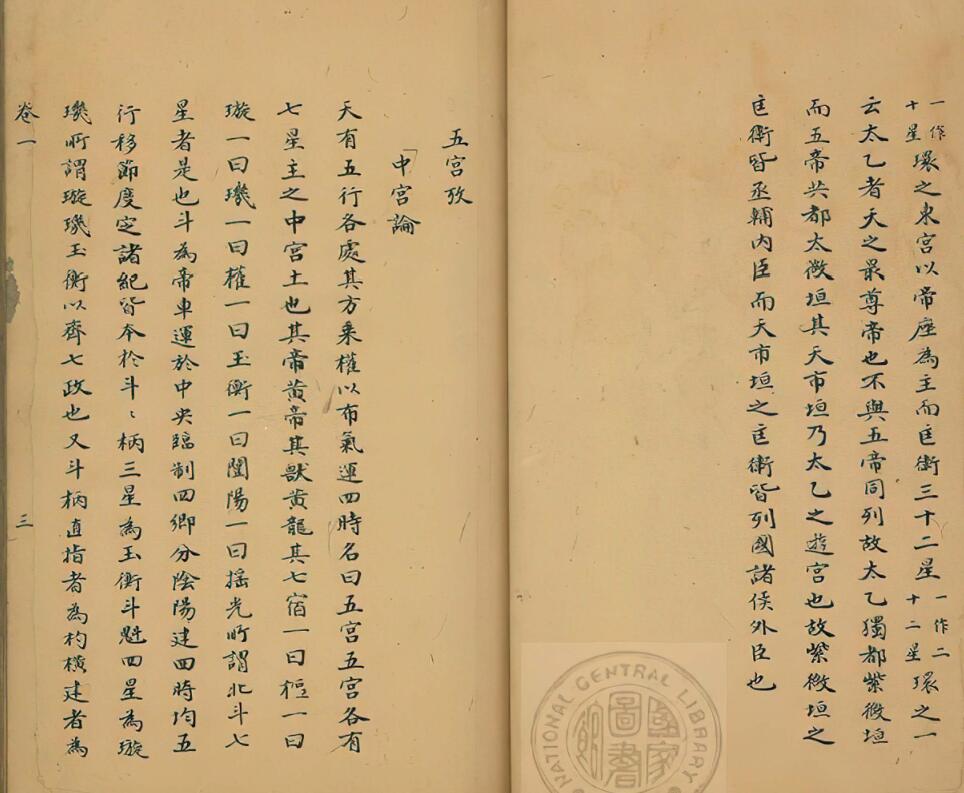 一作十星環之東宮以帝座為主而匡衛三十二星一作二十二星環之一
云太乙者天之最尊帝也不與五帝同列故太乙獨都紫微垣
而五帝共都太微垣其天市垣乃太乙之遊宮也故紫微垣之
匡衛皆丞輔內臣而天市垣之匡衛皆列國諸侯外臣也
五宮攷
「中宮論
天有五行各處其方乘權以布氣運四時名曰五宮五宮各有
七星主之中宮土也其帝黃帝其獸黃龍其七宿一曰樞一曰
璇一曰璣一曰權一曰玉衡一曰闓陽一曰搖光所謂北斗七
星者是也斗為帝車運於中央臨制四鄉分陰陽建四時均五
行移節度定諸紀皆本於斗〻柄三星為玉衡斗魁四星為璇
璣所謂璇璣玉衡以齊七政也又斗柄直指者為杓橫建者為
卷一
三
NATIONAL CENTRAL LIBRARY
國家圖書館